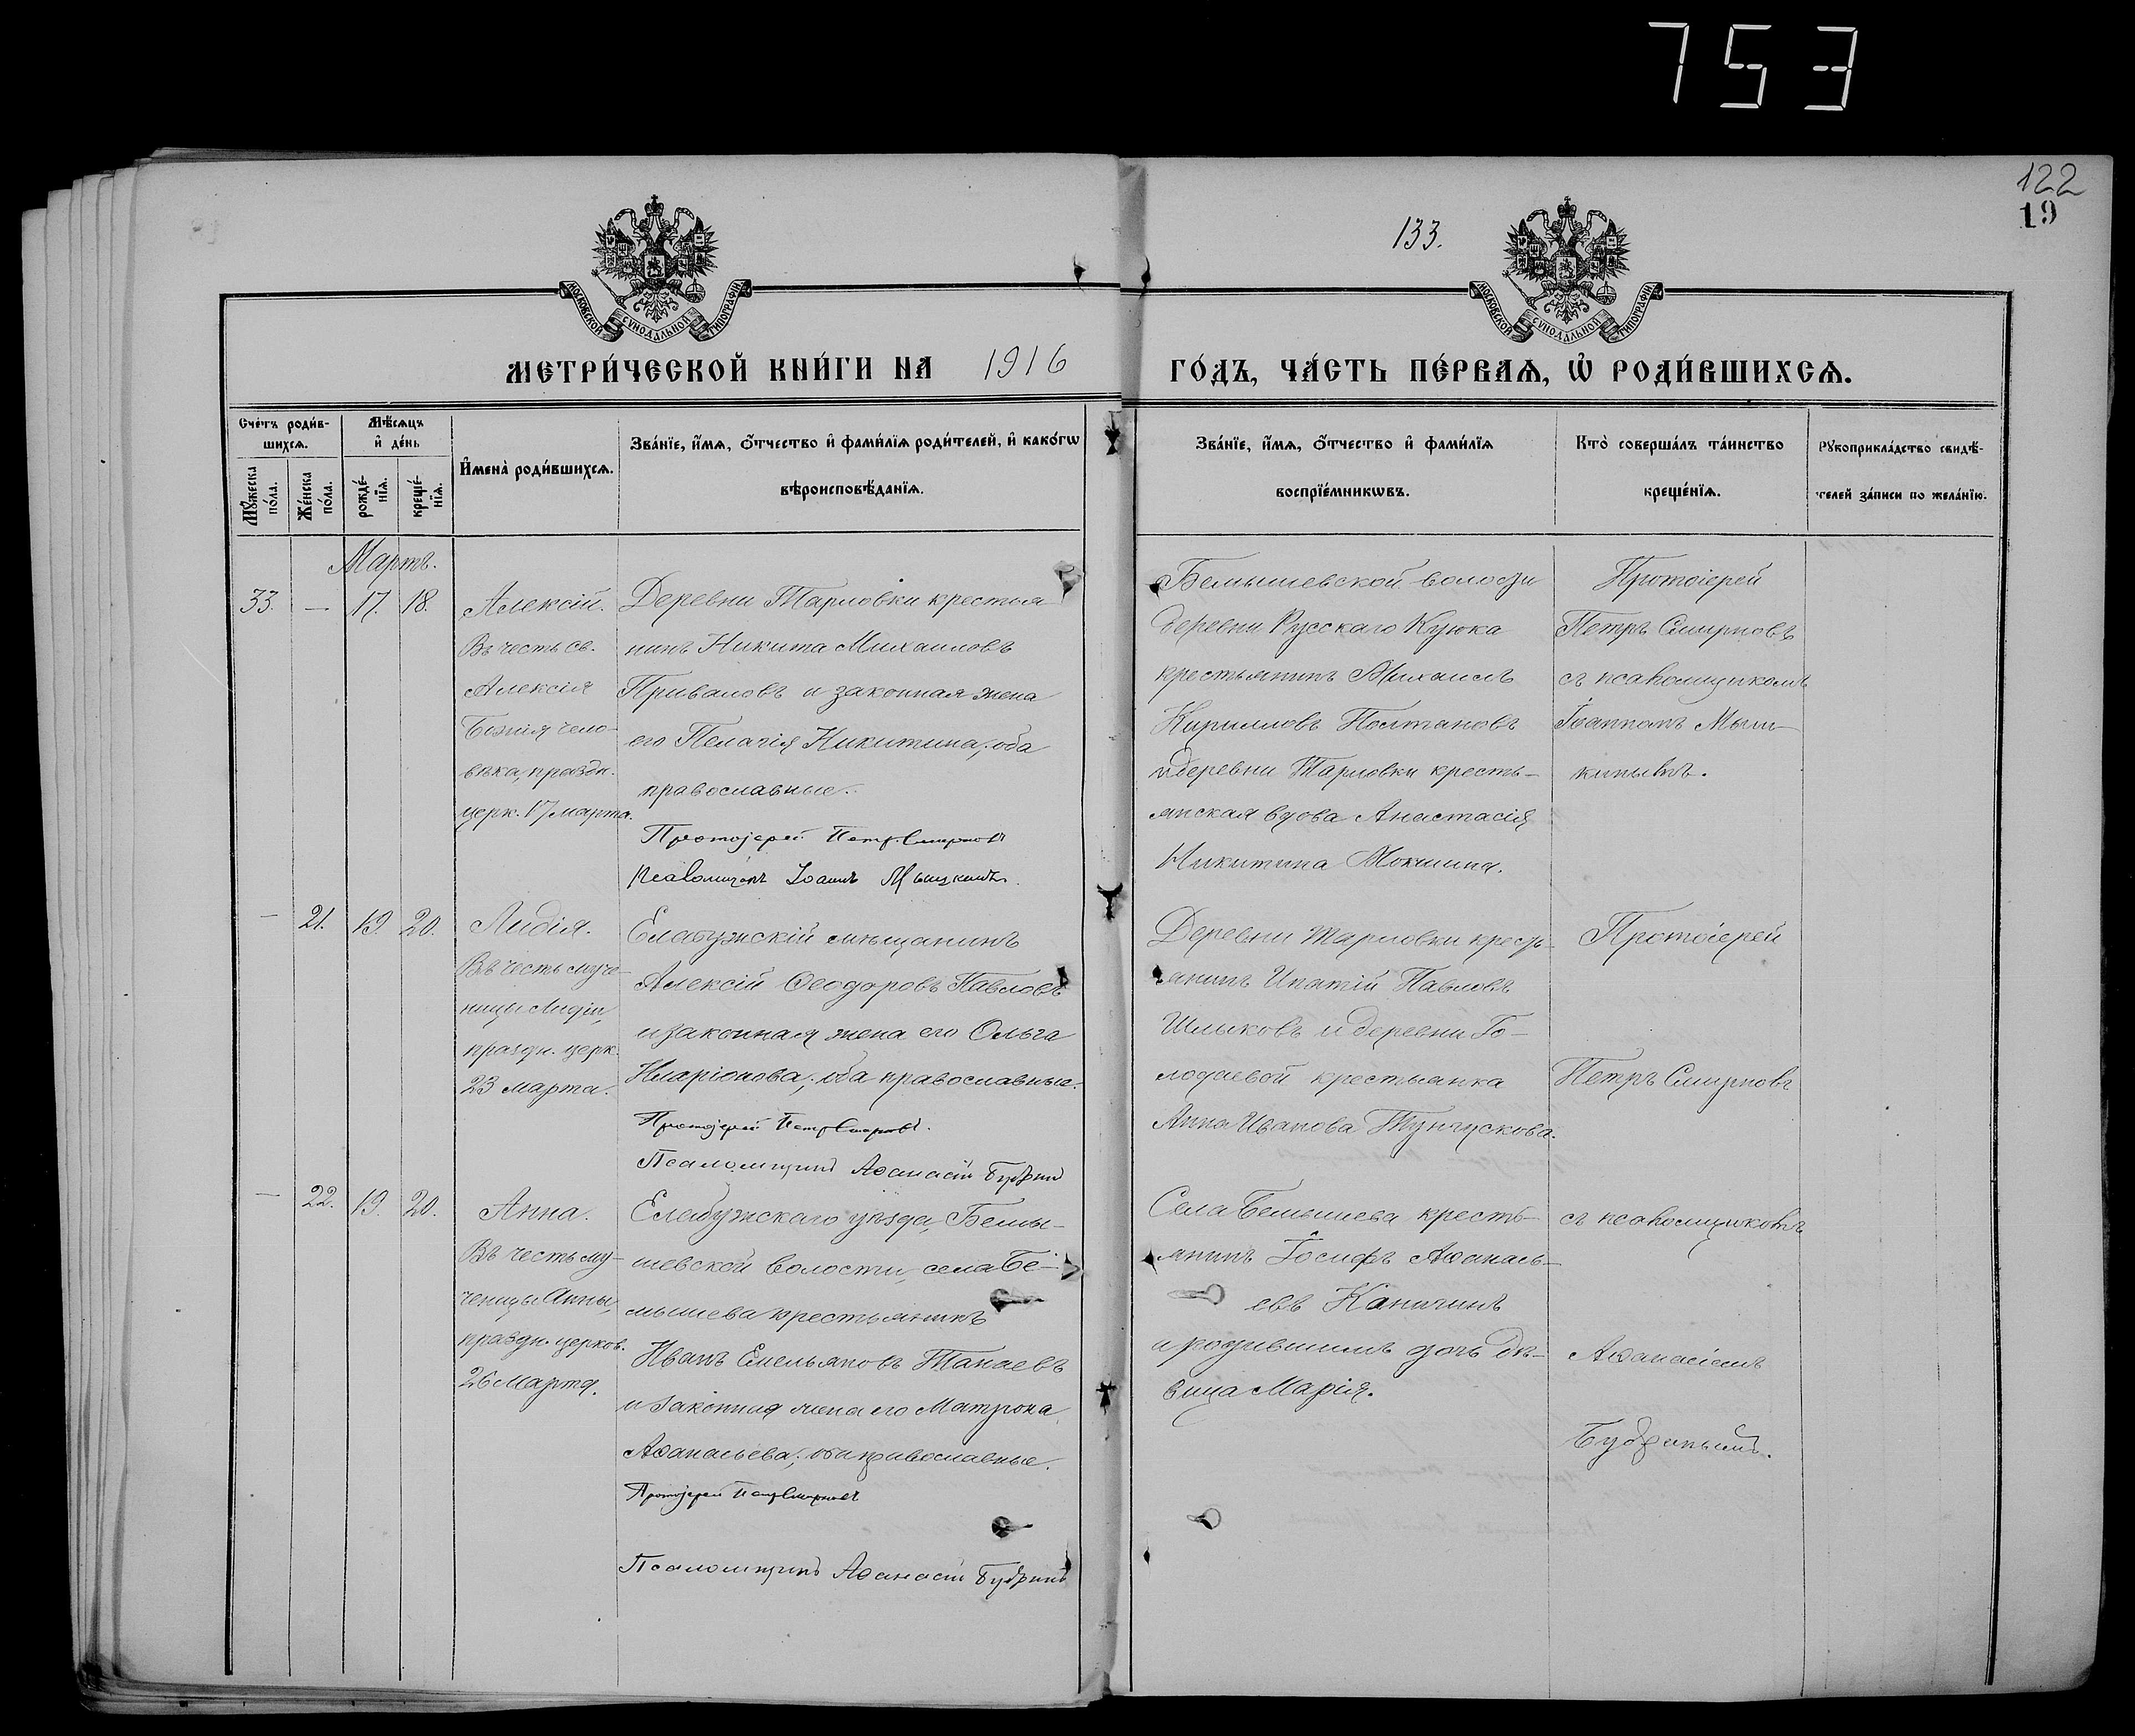 753
122
19
133.
МОСКОВСКОЙ СѴНОДАЛЬНОЙ ТИПОГРАФІИ
МОСКОВСКОЙ СѴНОДАЛЬНОЙ ТИПОГРАФІИ
МЕТРИ́ЧЕСКОЙ КНИ́ГИ НА 1916
ГО́ДЪ, ЧА́СТЬ ПЕ́РВАѦ, Ѡ҆ РОДИ́ВШИХСѦ.
Сче́тъ роди́в-
шихсѧ.
Мꙋ́жеска по́ла.
Же́нска по́ла.
Мѣ́сѧцъ
и҆ де́нь
рожде́-
нїѧ.
креще́-
нїѧ.
И҆мена̀ роди́вшихсѧ.
Зва́нїе, и҆́мѧ, ѻ҆́тчество и҆ фами́лїѧ роди́телей, и҆ како́гѡ
вѣроисповѣ́данїѧ.
Зва́нїе, и҆́мѧ, ѻ҆́тчество и҆ фами́лїѧ
воспрїе́мникѡвъ.
Кто̀ соверша́лъ та́инство
креще́нїѧ.
Рꙋкоприкла́дство свидѣ́-
телей за́писи по жела́нїю.
Мартъ.
33. — 17. 18.
Алексій.
Въ честь св.
Алексія
Божія чело-
вѣка, праздн.
церк. 17 марта.
Деревни Тарловки крестья
нинъ Никита Михаиловъ
Приваловъ и законная жена
его Пелагія Никитина; оба
православные.
Протоіерей Петръ Смирновъ
Псаломщикъ Іоаннъ Мышкинъ.
Бемышевской волости
деревни Русскаго Куюка
крестьянинъ Михаилъ
Кирилловъ Полтановъ
и деревни Тарловки кресть-
янская вдова Анастасія
Никитина Мокшина.
Протоіерей
Петръ Смирновъ
съ псаломщикомъ
Іоанномъ Мыш-
кинымъ.
— 21. 19. 20.
Лидія.
Въ честь муче-
ницы Лидіи,
праздн. церк.
23 марта.
Елабужскій мѣщанинъ
Алексій Ѳеодоровъ Павловъ
и законная жена его Ольга
Иларіонова; оба православные.
Протоіерей Петръ Смирновъ.
Псаломщикъ Аѳанасій Бубринъ
Деревни Тарловки кресть-
янинъ Ипатій Павловъ
Шлыковъ и деревни Го-
лодаевой крестьянка
Анна Иванова Тунгускова.
Протоіерей
Петръ Смирновъ
— 22. 19. 20.
Анна.
Въ честь му-
ченицы Анны,
праздн. церков.
26 Марта.
Елабужскаго уѣзда, Бемы-
шевской волости, села Бе-
мышева крестьянинъ
Иванъ Емельяновъ Танаевъ
и законная жена его Матрона
Аѳанасьева; оба православные.
Протоіерей Петръ Смирновъ
Псаломщикъ Аѳанасій Бубринъ
Села Бемышева кресть-
янинъ Іосифъ Аѳанась-
евъ Каничинъ
и родившимъ дочь дѣ-
вица Марія.
съ псаломщикомъ
Аѳанасіемъ
Бубринымъ.